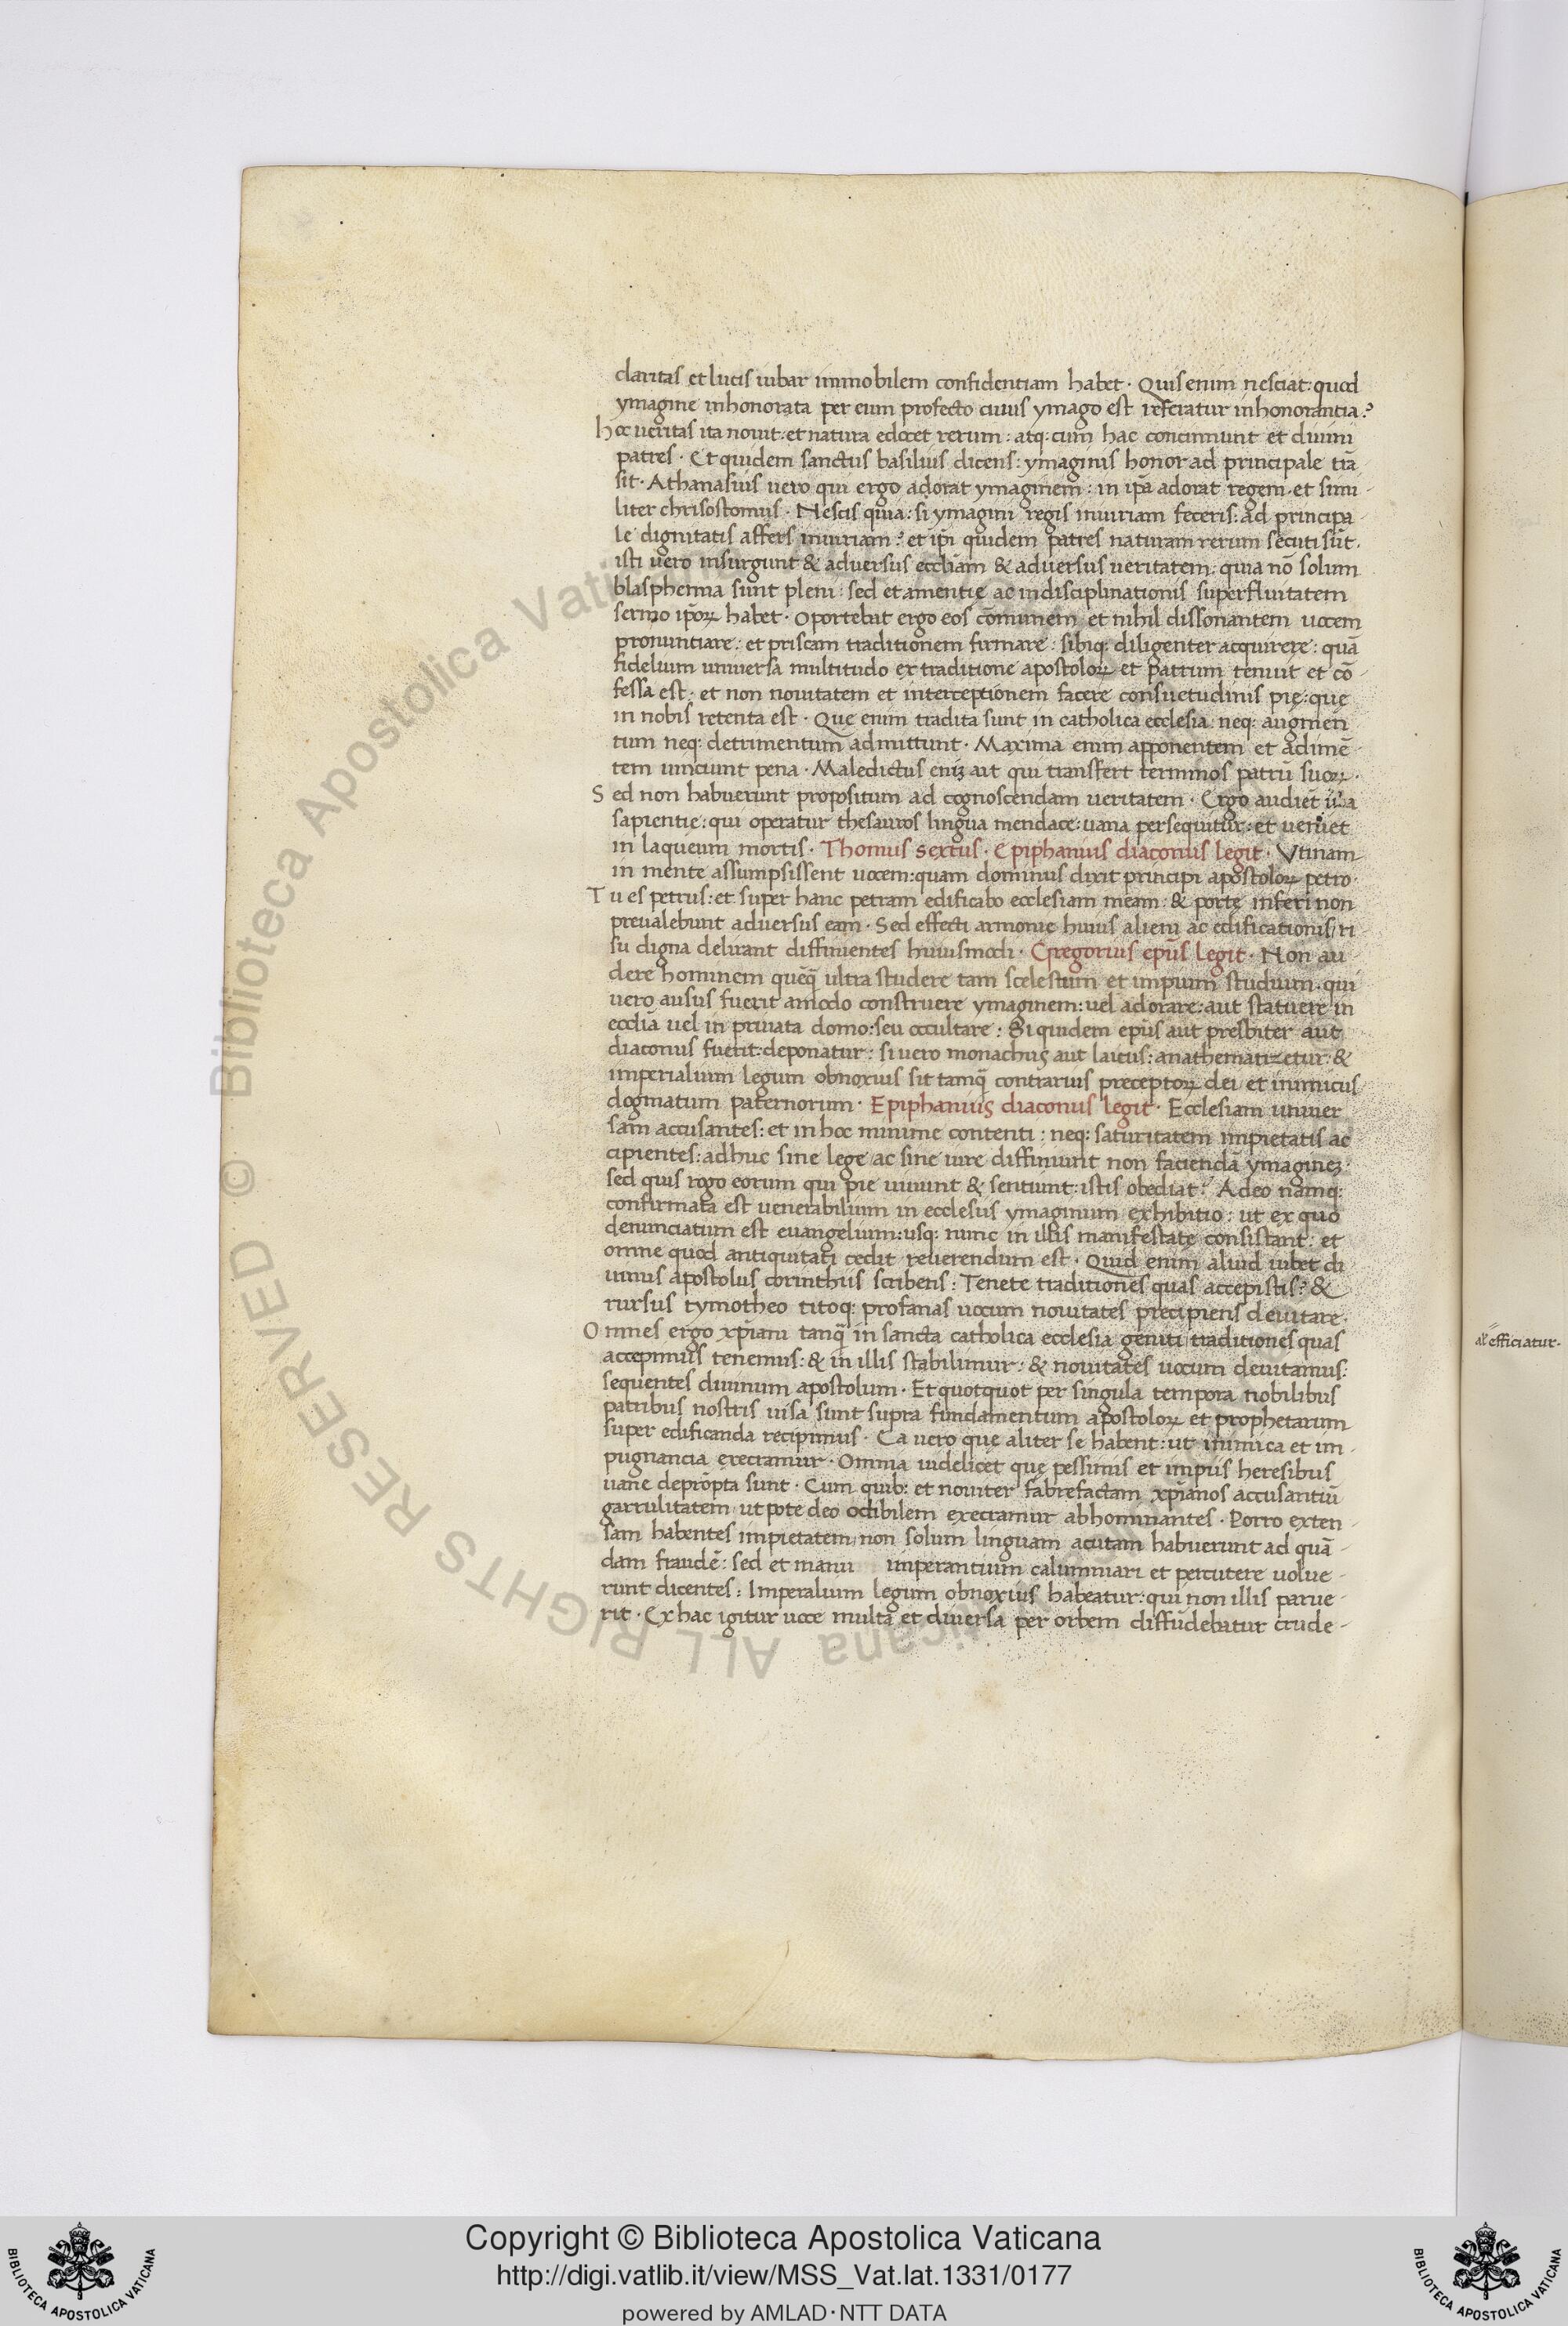 claritas et lucis iubar immobilem confidentiam habet · Quis enim nesciat: quod
ymagine inhonorata per eum profecto cuius ymago est refciatur inhonorantia?
hoc ueritas ita nouit: et natura edocet rerum: atq: cum hac concinnunt et diuini
patres · Et quidem sanctus basilius dicens: ymaginis honor ad principale trā
sit · Athanasius uero qui ergo adorat ymaginem: in ip̄a adorat regem · et simi-
liter chrisostomus · Nescis quia: si ymagini regis iniuriam feceris: ad principa
le dignitatis affers iniuriam? et ip̄i quidem patres naturam rerum secuti sūt ·
isti uero insurgunt & aduersus eccl̄iam & aduersus ueritatem: quia nō solum
blasphemia sunt pleni: sed et amentię ac indisciplinationis superfluitatem
sermo ip̄oꝝ habet · Oportebat ergo eos cōmunem et nihil dissonantem uocem
pronuntiare: et priscam traditionem firmare: sibiq: diligenter acquirere: quā
fidelium uniuersa multitudo ex traditione apostoloꝝ et patrum tenuit et cō-
fessa est · et non nouitatem et interceptionem facere consuetudinis pię: quę
in nobis retenta est · Que enim tradita sunt in catholica ecclesia neq: augmen
tum neq: detrimentum admittunt · Maxima enim apponentem et adimē-
tem uinciunt pena · Maledictus eniꝫ ait qui transfert terminos patrū suoꝝ ·
Sed non habuerunt propositum ad cognoscendam ueritatem · Ergo audiet
sapientie: qui operatur thesauros lingua mendace: uana persequitur: et ueniet
in laqueum mortis · Thomus sextus · Epiphanius diaconus legit · Vtinam
in mente assumpsissent uocem: quam dominus dixit principi apostoloꝝ petro ·
Tu es petrus: et super hanc petram edificabo ecclesiam meam: & portę inferi non
preualebunt aduersus eam · Sed effecti armonie huius alieni ac edificationis / ri
su digna delirant diffinientes huiusmodi · Gregorius ep̄us legit · Non au
dere hominem quēq̄ ultra studere tam scelestum et impium studium · qui
uero ausus fuerit amodo construere ymaginem: uel adorare: aut statuere in
eccl̄ia uel in priuata domo: seu occultare: Si quidem ep̄us aut presbiter aut
diaconus fuerit: deponatur: si uero monachus aut laicus: anathematizetur: &
imperialium legum obnoxius sit tamq̄ contrarius preceptoꝝ dei et inimicus
dogmatum paternorum · Epiphanius diaconus legit · Ecclesiam uniuer
sam accusantes: et in hoc minime contenti: neq: saturitatem impietatis ac
cipientes: adhuc sine lege ac sine iure diffiniunt non faciendā ymagineꝫ ·
sed quis rogo eorum qui pie uiuunt & sentiunt: istis obediat? Adeo namq:
confirmata est uenerabilium in ecclesiis ymaginum exhibitio: ut ex quo
denunciatum est euangelium: usq: nunc in illis manifestate consistant: et
omne quod antiquitati cedit reuerendum est · Quid enim aliud iubet di
uinus apostolus corinthiis scribens: Tenete traditiones quas accepistis? &
rursus tymotheo titoq: profanas uocum nouitates precipiens deuitare ·
Omnes ergo xp̄iani tanq̄ in sancta catholica ecclesia geniti traditiones quas
accepimus tenemus: & in illis stabilimur: & nouitates uocum deuitamus:
sequentes diuinum apostolum · Et quotquot per singula tempora nobilibus
patribus nostris uisa sunt supra fundamentum apostoloꝝ et prophetarum
super edificanda recipimus · Ea uero que aliter se habent: ut inimica et im-
pugnancia execramur · Omnia uidelicet quę pessimis et impiis heresibus
uane deprōpta sunt · Cum quib: et nouiter fabrefactam xp̄ianos accusantiū
garrulitatem ut pote deo odibilem execramur abhominantes · Porro exten-
sam habentes impietatem / non solum linguam acutam habuerunt ad quā-
dam fraudē: sed et manu imperantium calumniari et percutere uolue-
runt dicentes: Imperalium legum obnoxius habeatur: qui non illis parue-
rit · Ex hac igitur uoce multa et diuersa per orbem diffūdebatur crude-
al' efficiatur ·
© Biblioteca Apostolica Vaticana ALL RIGHTS RESERVED
Copyright © Biblioteca Apostolica Vaticana
http://digi.vatlib.it/view/MSS_Vat.lat.1331/0177
powered by AMLAD·NTT DATA
BIBLIOTECA APOSTOLICA VATICANA
BIBLIOTECA APOSTOLICA VATICANA